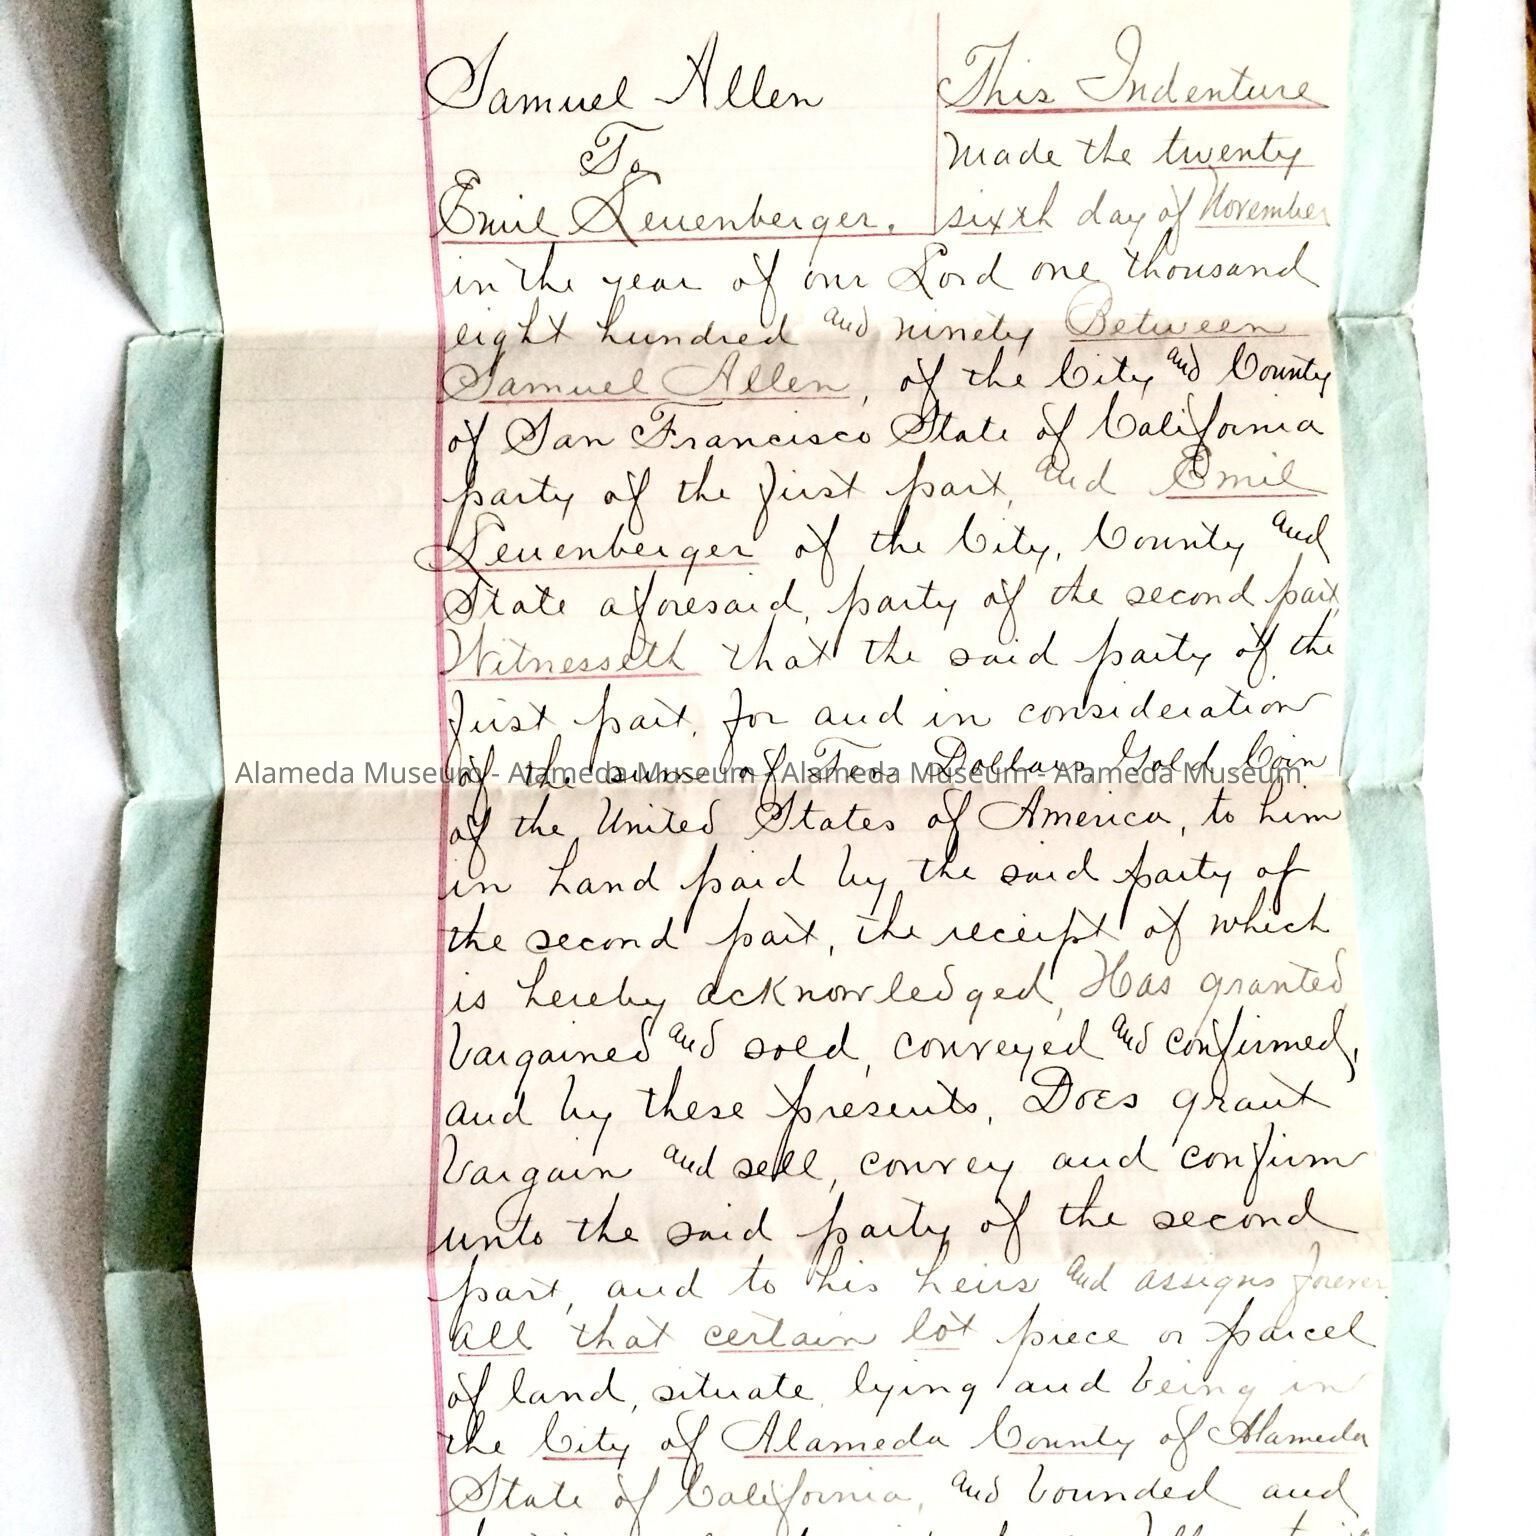 Samuel Allen
To
Emil Leuenberger.
This Indenture
Made the twenty
sixth day of November
in the year of our Lord one thousand
eight hundred and ninety Between
Samuel Allen, of the City and County
of San Francisco State of California
party of the first part, and Emil
Leuenberger of the City, County and
State aforesaid, party of the second part,
Witnesseth that the said party of the
first part, for and in consideration
of the sum of Ten Dollars Gold Coin
Alameda Museum - Alameda Museum - Alameda Museum - Alameda Museum
of the United States of America, to him
in hand paid by the said party of
the second part, the receipt of which
is hereby acknowledged, Has granted
bargained and sold, conveyed and confirmed,
and by these presents, Does grant
bargain and sell, convey and confirm
unto the said party of the second
part, and to his heirs and assigns forever
all that certain lot piece or parcel
of land, situate, lying and being in
the City of Alameda County of Alameda
State of California, and bounded and